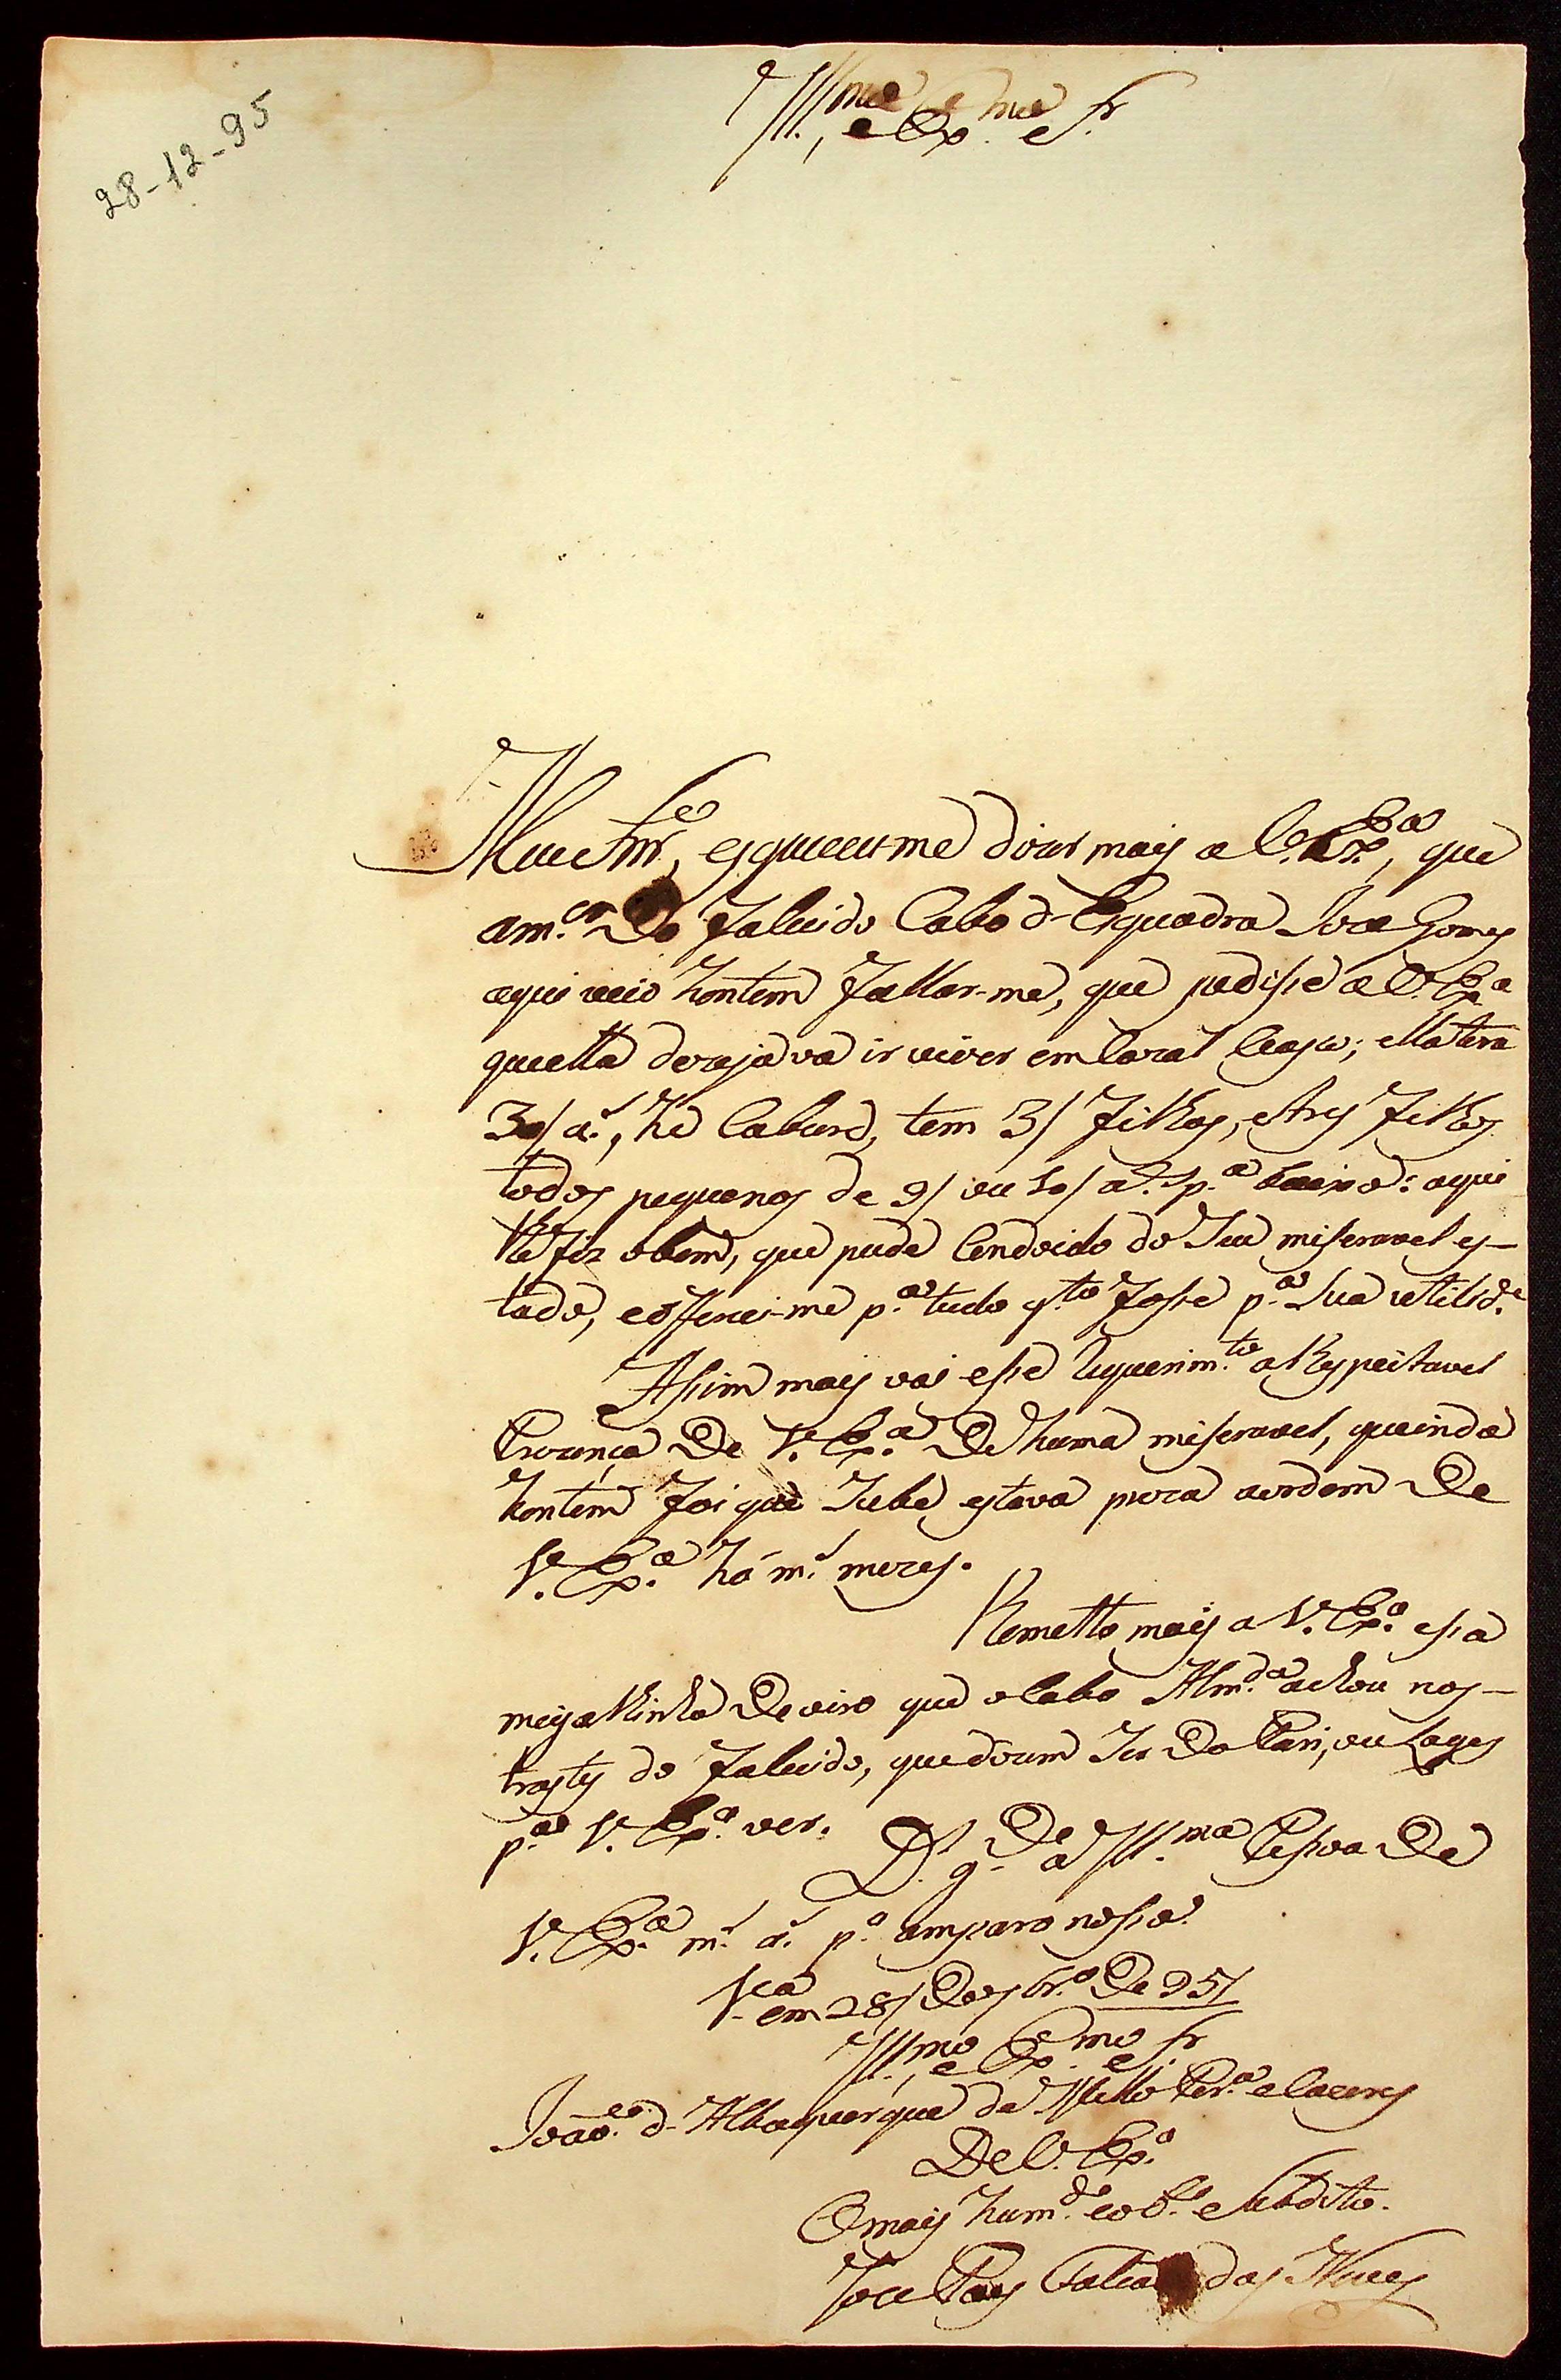 28-12-95
Ill.mo, e Ex.mo Sr.
Meu Snr., esqueceu-me dizer mais a V. Ex.ª, que
a m.er Do falecido Cabo d'Esquadra José Gomes
aqui veio hontem fallar-me, que pedisse a V. Ex.ª
quella dezejava ir viver em Cazal ; ella terá
30/ a.s, he , tem 3/ filhos, e tres filhas
todos pequenos de 9/ ou 10/ a.s p.ª baixo: aqui
lhe fiz o bem, que pude Condoido do seu miseravel es-
tado, e offereci-me p.ª tudo q.to fosse p.ª sua utilid.e
Assim mais vai esse Requerim.to a Respeitavel
Prezença De V. Ex.ª De huma miseravel, que inda
hontem foi que sube estava preza a ordem De
V. Ex.ª há m.s mezes.
Remetto mais a V. Ex.ª essa
De oiro que o Cabo Alm.da achou nos
trastes do falecido, que dizem ser Do Pari, ou Lages
p.ª V. Ex.ª ver. D.s g.de a Ill.ma Pessoa De
V. Ex.ª m.s a.s p.ª amparo nosso.
V.ª em 28/ Dezbr.o De 95/
Ill.mo, e Ex.mo Sr.
João d'Albuquerque de Mello Per.ª e Caceres
De V. Ex.ª
O mais hum.de e ob.e Subdito.
Joze Paes Falcão das Neves